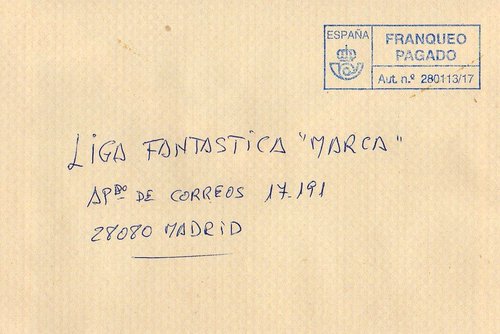 ESPAÑA
FRANQUEO
PAGADO
Aut. n.º 280113/17
LIGA FANTASTICA "MARCA"
APDO DE CORREOS 17.191
28080 MADRID